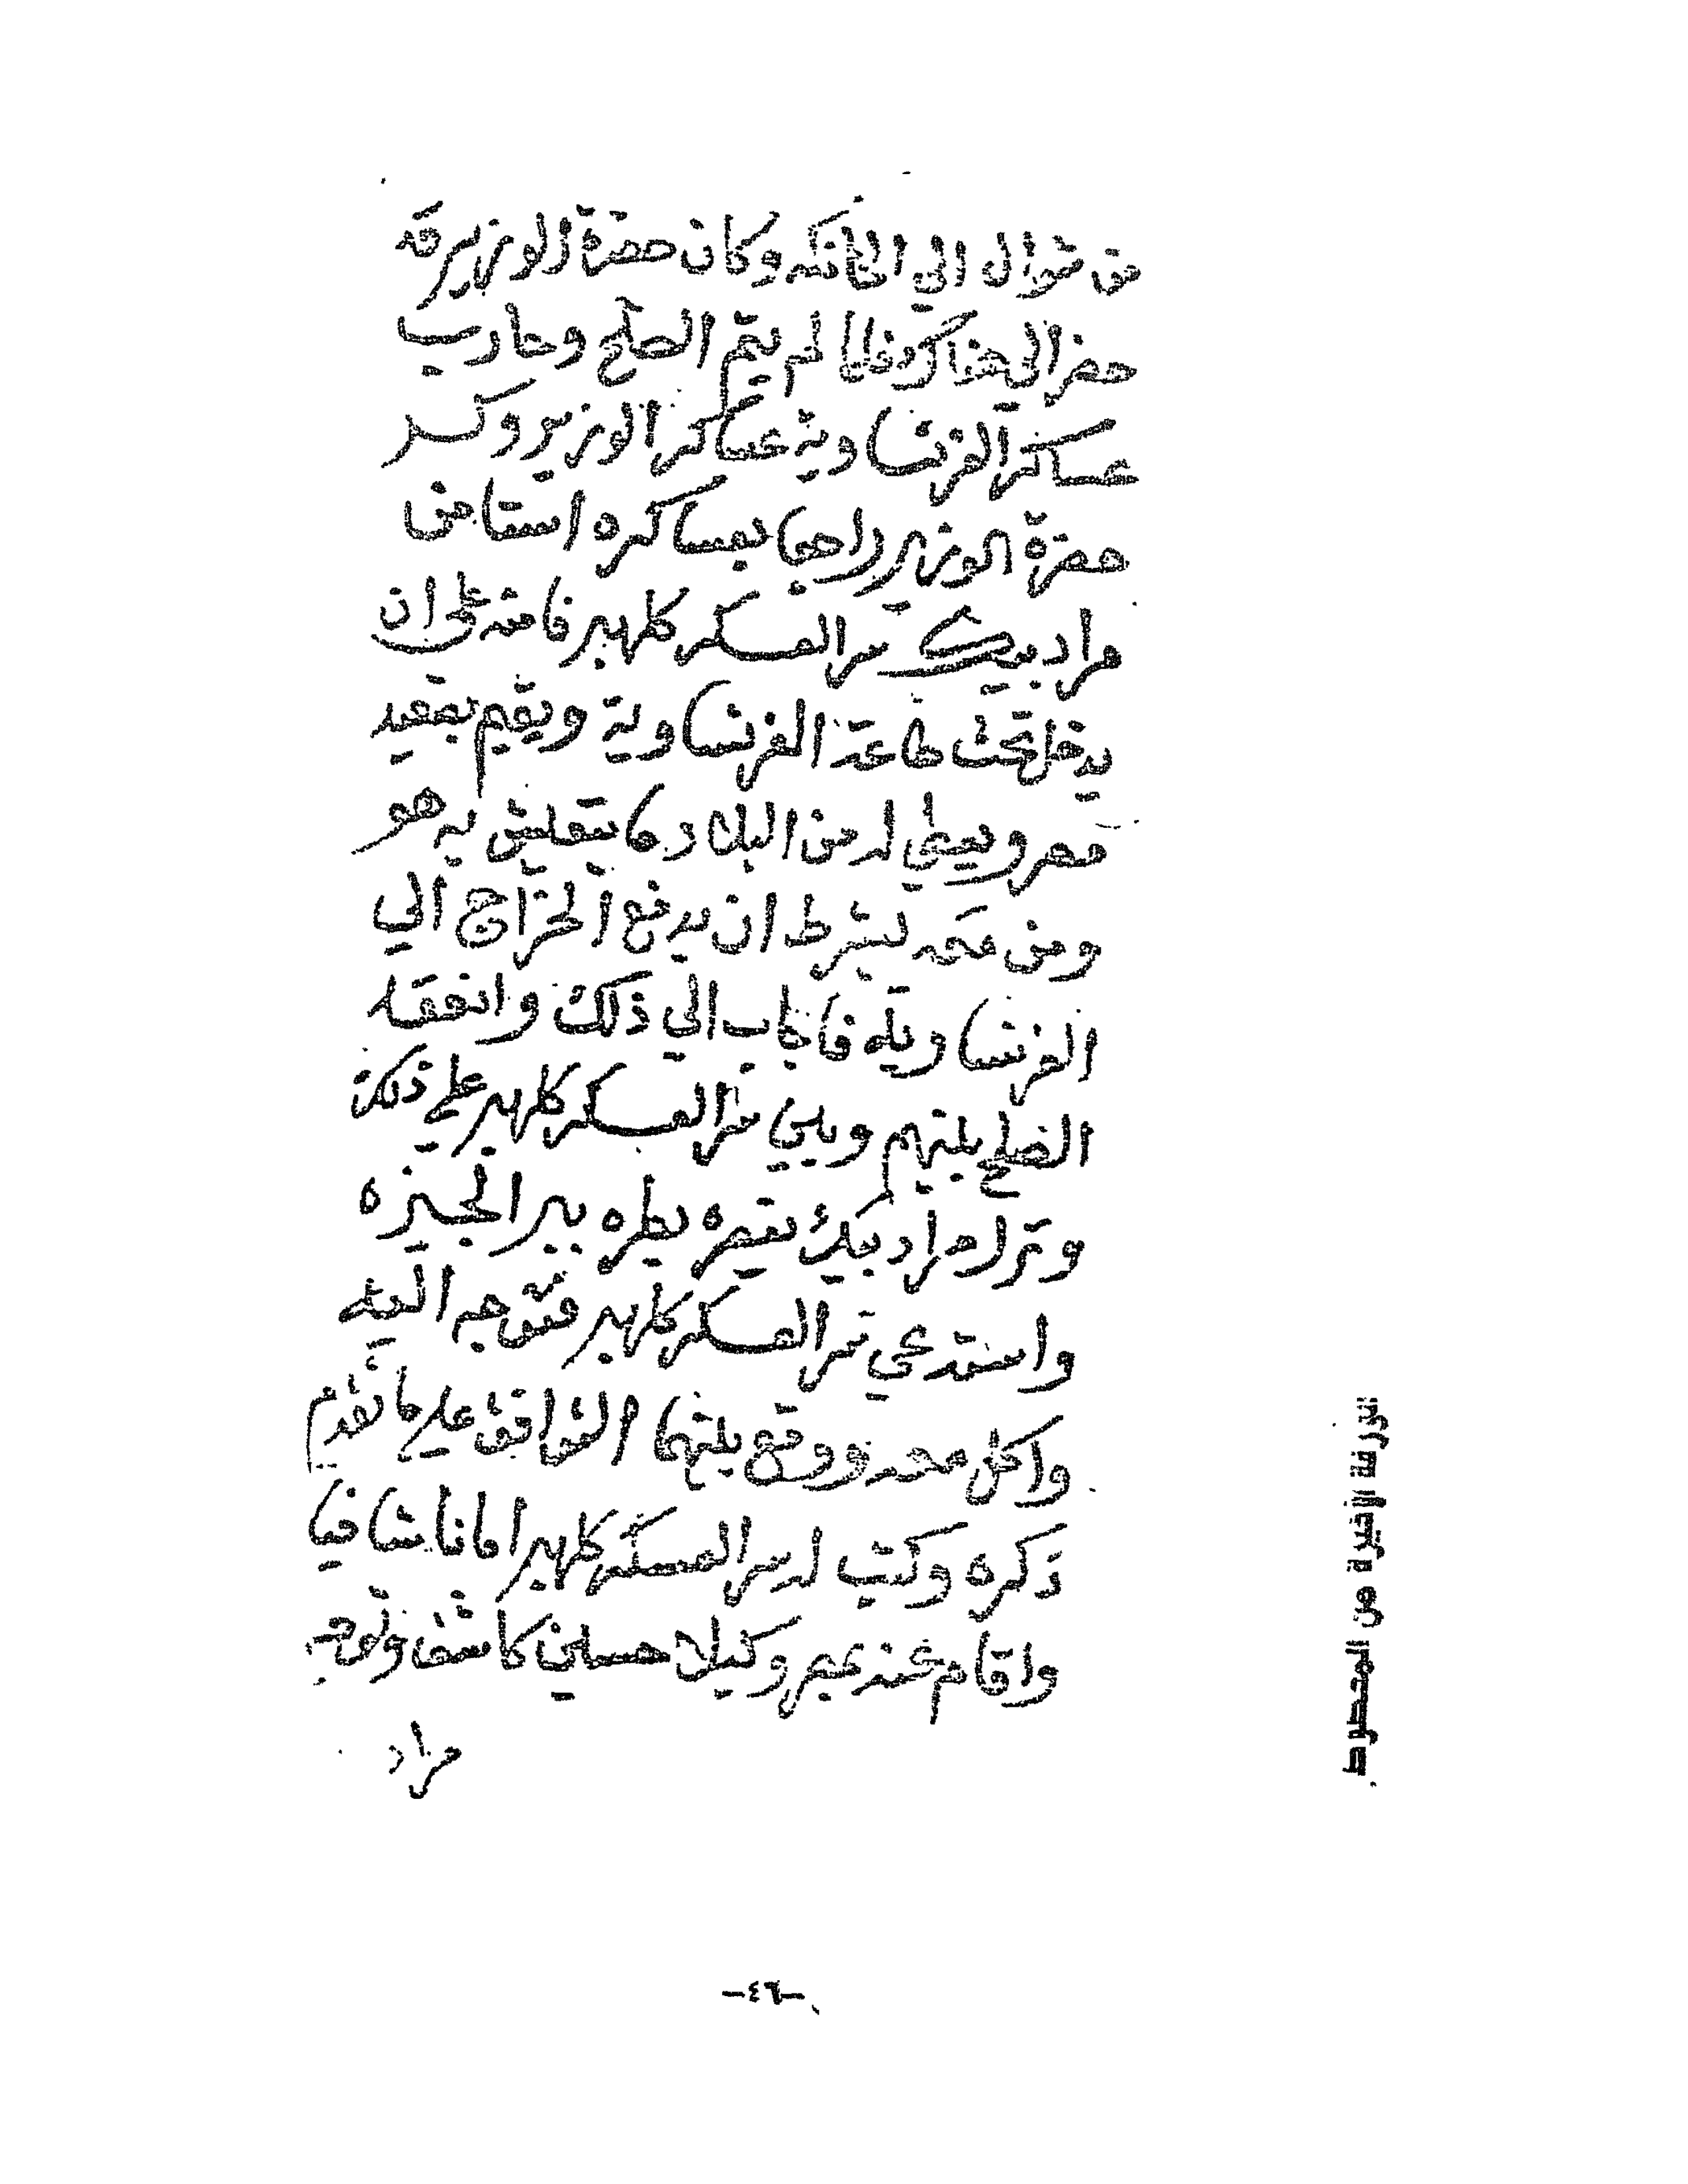 من شوال الي الخانكه وكان حضرة الوزير قد
حضر الي هناك فلما لم يتم الصلح وحارب
عساكر الفرنساوية عساكر الوزير وكسر
حضرة الوزير راجعا بعساكره استامن
مراد بيك سر العسكر كلهبر فامنه علي ان
يدخل تحت طاعة الفرنساوية ويقيم بصعيد
مصر ويعطي له من البلاد ما يتعيش به هو
ومن معه بشرط ان يدفع الخراج الي
الفرنساوية فاجاب الي ذلك وانعقد
الصلح بينهم وبين سر العسكر كلهبر علي ذلك
ونزل مراد بيك بقصره بطره ببر الجيزه
واستدعي سر العسكر كلهبر فتوجه اليه
واكل معه ووقع بينهما التوافق علي ما تقدم
ذكره وكتب له سر العسكر كلهبر امانا شافيا
واقام عند بمصر وكيلا حسين كاشف وتوجه
مراد
-٤٦-